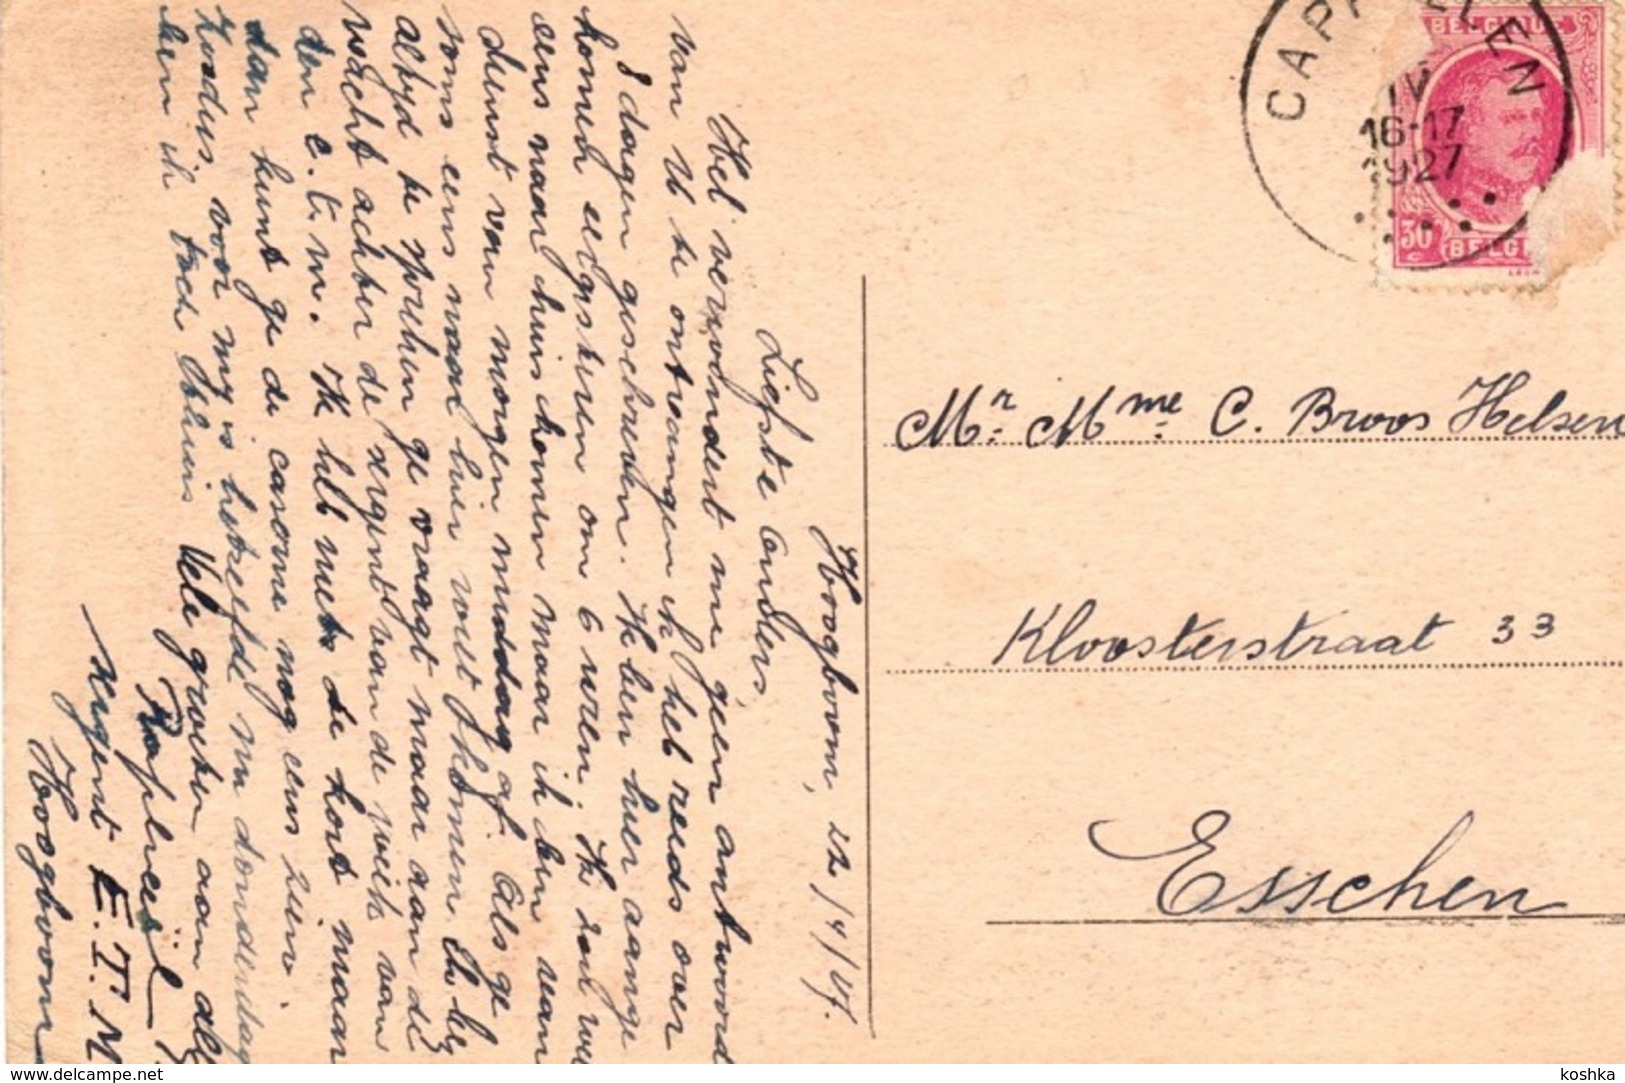 Hoogboom, 22/4/27.
Liefste Ouders,
Het verwondert me geen antwoord
van U te ontvangen ik heb reeds over
8 dagen geschreven. Ik ben hier aange
komen eergisteren om 6 uren. Ik zal we
eens naar huis komen maar ik ben van
dienst van morgen middag af. Als ge
soms eens naar hier wilt komen. Ik heb
altyd te spreken ge vraagt maar aan de
wacht achter de sergent van de week van
den C.t.m. Ik heb niets te kort maar
dan kunt ge de caserne nog eens zien.
Kosdus, voor my is hetzelfde nu donderdag
ben ik toch thuis Vele groeten aan all
Raphaël
sergent E.T.M
Hoogboom
CAPP LLEN
IV
16-17
1927
BELGIQUE
30
BELGI
Mr. Mme. C. Broos Helsen
Kloosterstraat 33
Esschen
delcampe.net
koshka